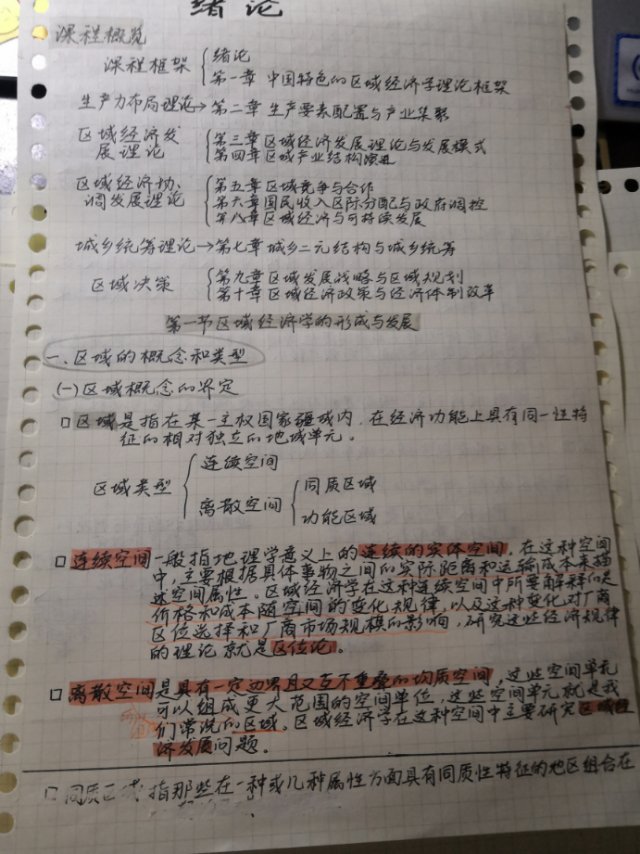 绪论
课程概览
课程框架 绪论
第一章 中国特色的区域经济学理论框架
生产力布局理论→第二章 生产要素配置与产业集聚
区域经济发展理论 第三章 区域经济发展理论与发展模式
第四章 区域产业结构演进
区域经济协调发展理论 第五章 区域竞争与合作
第六章 国民收入区际分配与政府调控
第八章 区域经济与可持续发展
城乡统筹理论→第七章 城乡二元结构与城乡统筹
区域决策 第九章 区域发展战略与区域规划
第十章 区域经济政策与经济体制改革
第一节 区域经济学的形成与发展
一、区域的概念和类型
(一)区域概念的界定
区域是指在某一主权国家疆域内，在经济功能上具有同一性特
征的相对独立的地域单元。
区域类型 连续空间
离散空间 同质区域
功能区域
连续空间一般指地理学意义上的连续的实体空间。在这种空间
中，主要根据具体事物之间的实际距离和运输成本来描
述空间属性。区域经济学在这种连续空间中所要解释的是
价格和成本随空间的变化规律，以及这种变化对厂商
区位选择和厂商市场规模的影响，研究这些经济规律
的理论就是区位论。
离散空间是具有一定边界且又互不重叠的均质空间，这些空间单元
可以组成更大范围的空间单位，这些空间单元就是我
们常说的区域。区域经济学在这种空间中主要研究区域经
济发展问题。
同质区域指那些在一种或几种属性方面具有同质性特征的地区组合在